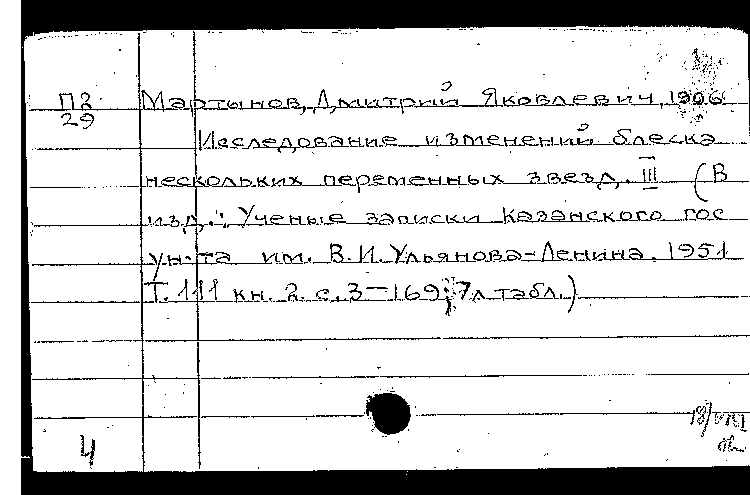 П2 Мартынов, Дмитрий Яковлевич, 1906
29
Исследование изменений блеска
нескольких переменных звезд. III (В
изд.: Ученые записки Казанского гос
ун-та им. В.И. Ульянова-Ленина, 1951
Т. 111 кн. 2. с. 3-169; 7л табл.)
18/VIII
4